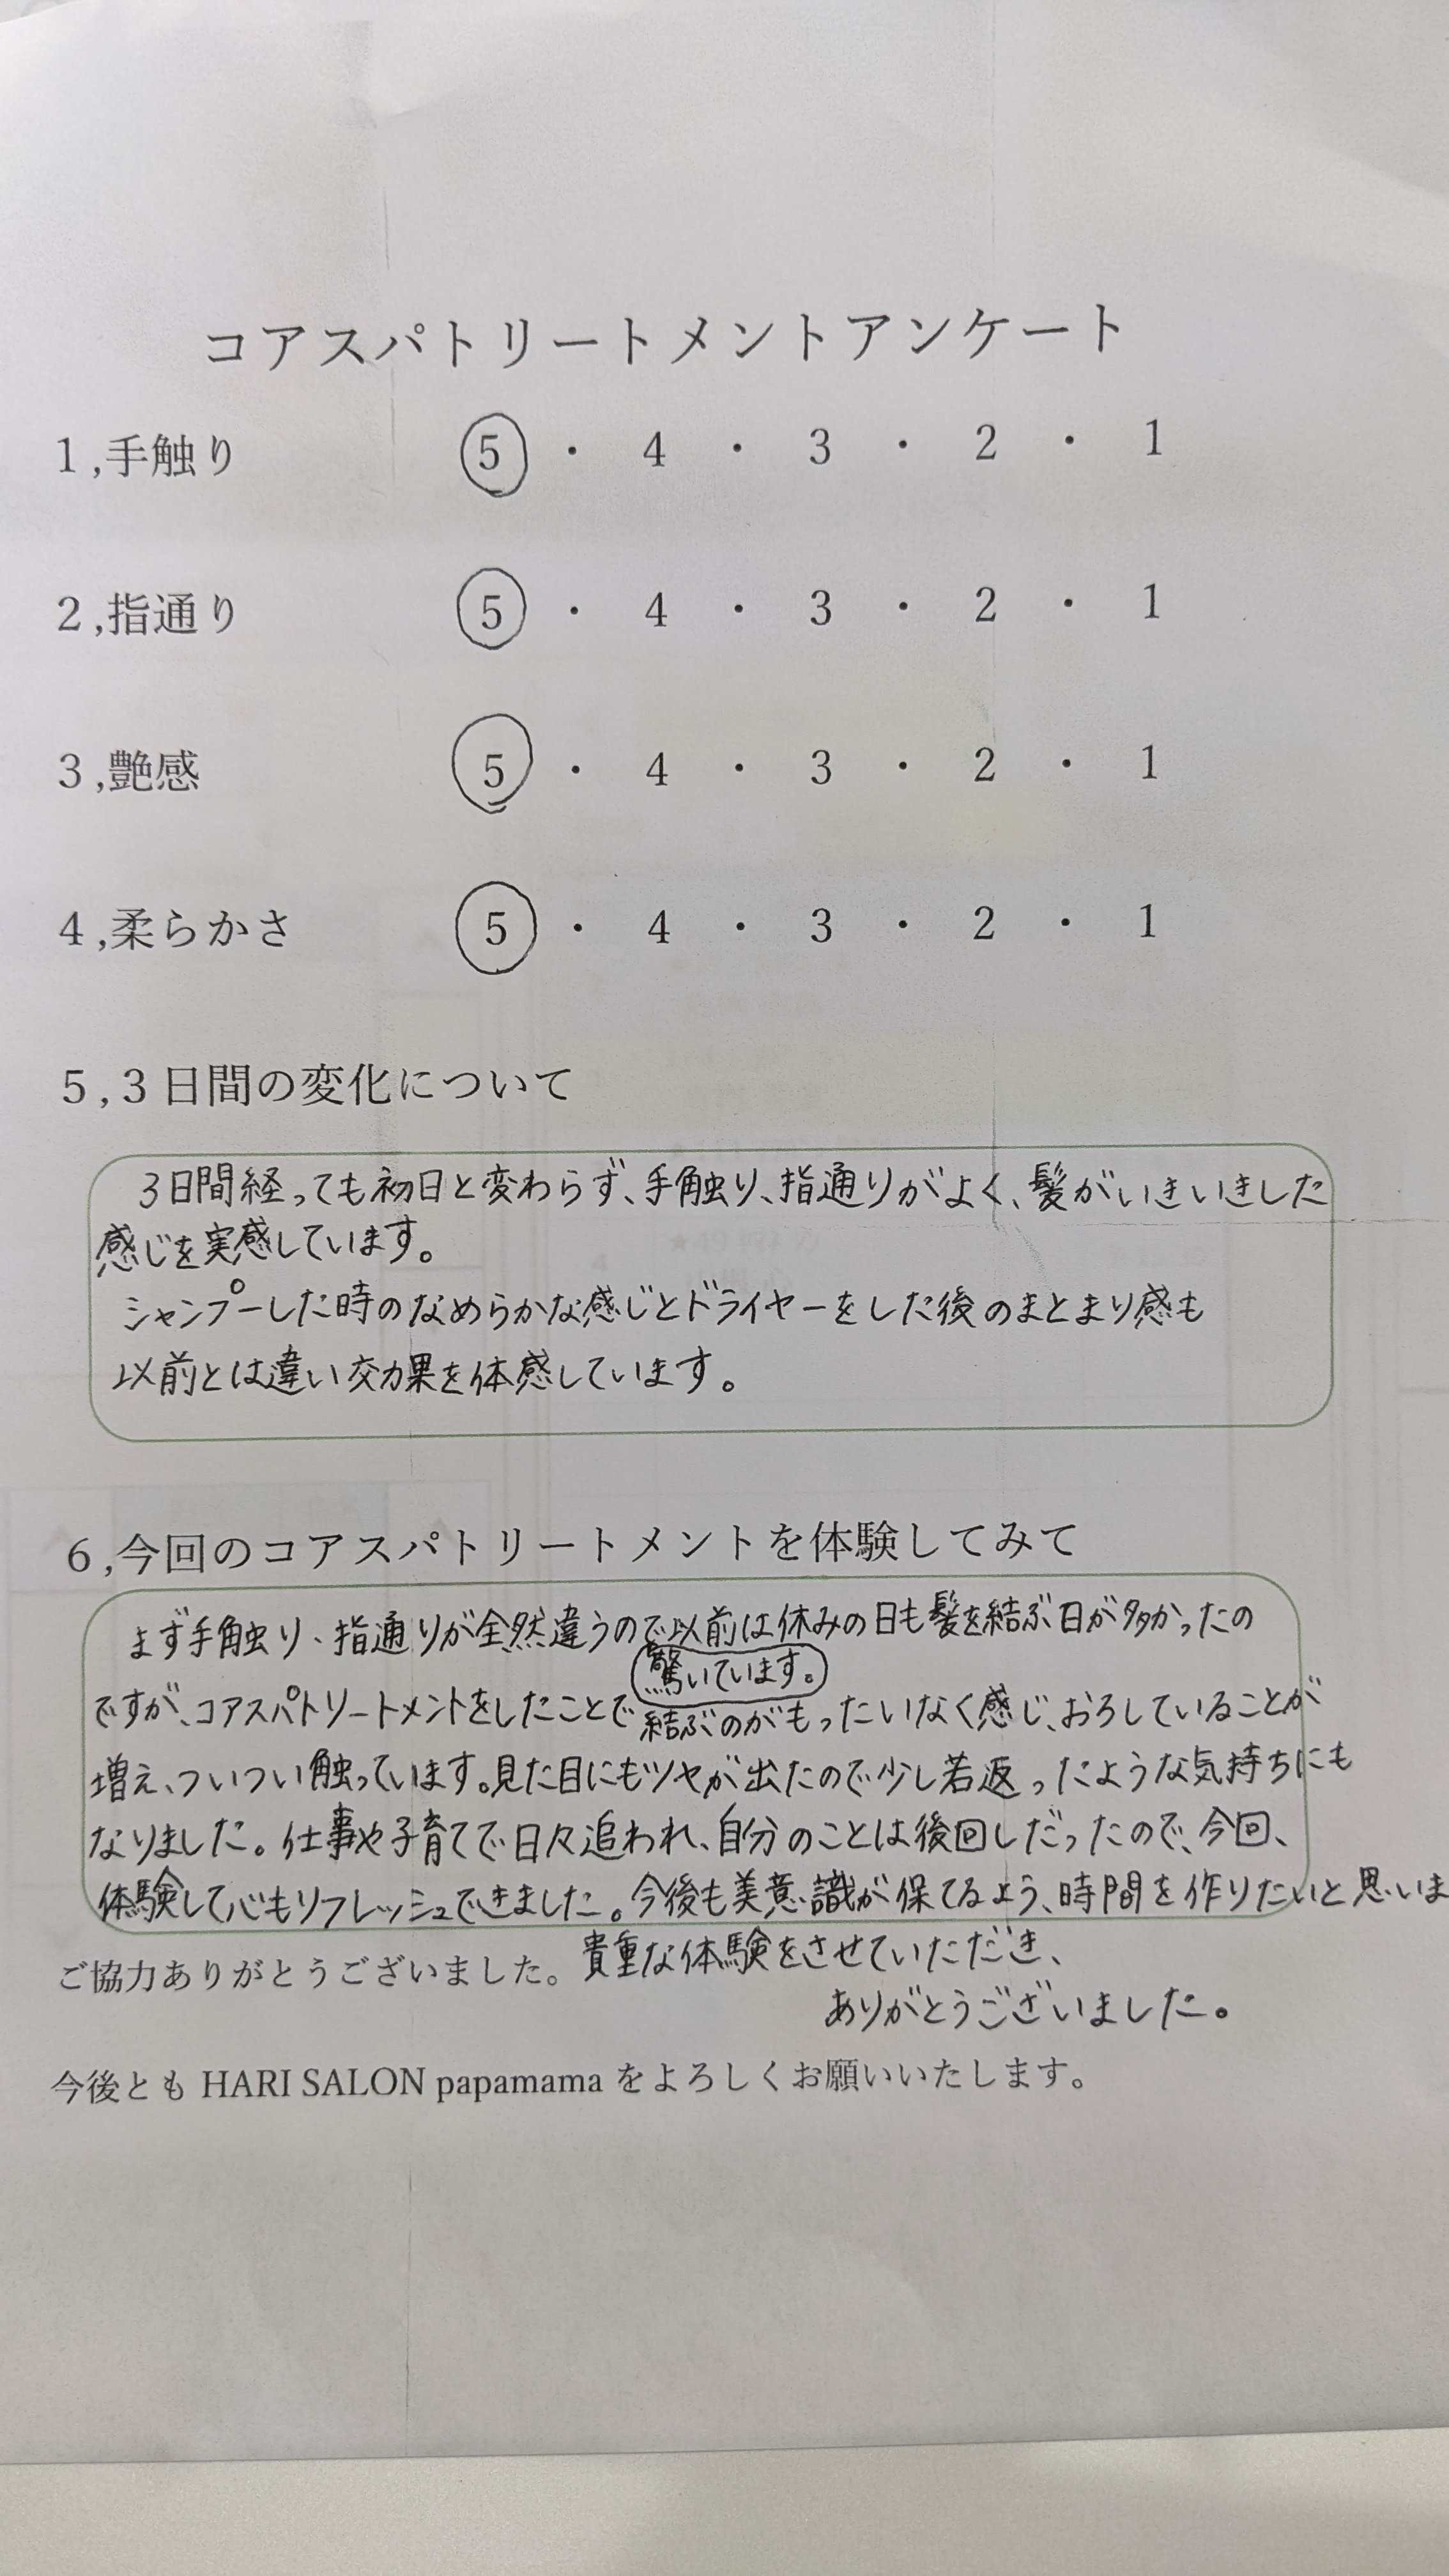 コアスパトリートメントアンケート
1,手触り 5 ・ 4 ・ 3 ・ 2 ・ 1
2,指通り 5 ・ 4 ・ 3 ・ 2 ・ 1
3,艶感 5 ・ 4 ・ 3 ・ 2 ・ 1
4,柔らかさ 5 ・ 4 ・ 3 ・ 2 ・ 1
5,3日間の変化について
3日間経っても初日と変わらず、手触り、指通りがよく、髪がいきいきした
感じを実感しています。
シャンプーした時のなめらかな感じとドライヤーをした後のまとまり感も
以前とは違い効果を体感しています。
6,今回のコアスパトリートメントを体験してみて
まず手触り、指通りが全然違うので以前は休みの日も髪を結ぶ日が多かったの
驚いています。
ですが、コアスパトリートメントをしたことで結ぶのがもったいなく感じ、おろしていることが
増え、ついつい触っています。見た目にもツヤが出たので少し若返ったような気持ちにも
なりました。仕事や子育てで日々追われ、自分のことは後回しだったので、今回、
体験して心もリフレッシュできました。今後も美意識が保てるよう、時間を作りたいと思いま
ご協力ありがとうございました。貴重な体験をさせていただき、
ありがとうございました。
今後とも HARI SALON papamama をよろしくお願いいたします。